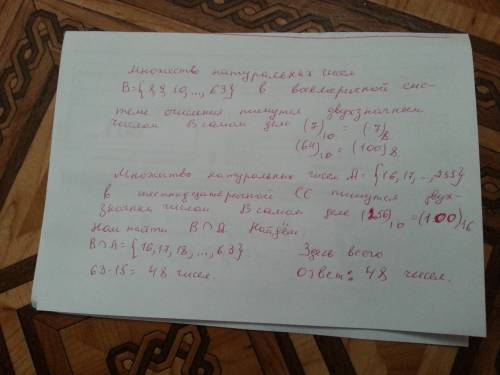 Множество натуральных чисел
B={8,9,10,...,63} в восьмеричной сис-
теме счисления пишутся двухзначным
числом В самом деле (7)₁₀ = (7)₈
(64)₁₀ = (100)₈
Множество натуральных чисел A={16,17,...,255}
в шестнадцатеричной СС пишутся двух-
значным числом. В самом деле (256)₁₀ = (100)₁₆
Нам найти B∩A. Найдём.
B∩A={16,17,18,...,63}. Здесь всего
63-15=48 чисел. Ответ: 48 чисел.